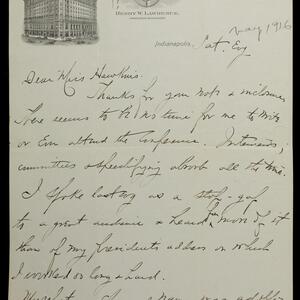 HENRY W. LAWRENCE,
Indianapolis,
Sat. Eg
May 1916
Dear Miss Hawkins.
Thanks for your note & inclosure
There seems to be no time for me to write
or even attend the conference. Interviews,
committees & speechifying absorb all the time.
I spoke last evg as a stop-gap
to a great audience & heard more of it
than of my Presidents address on which
I worked so long & hard.